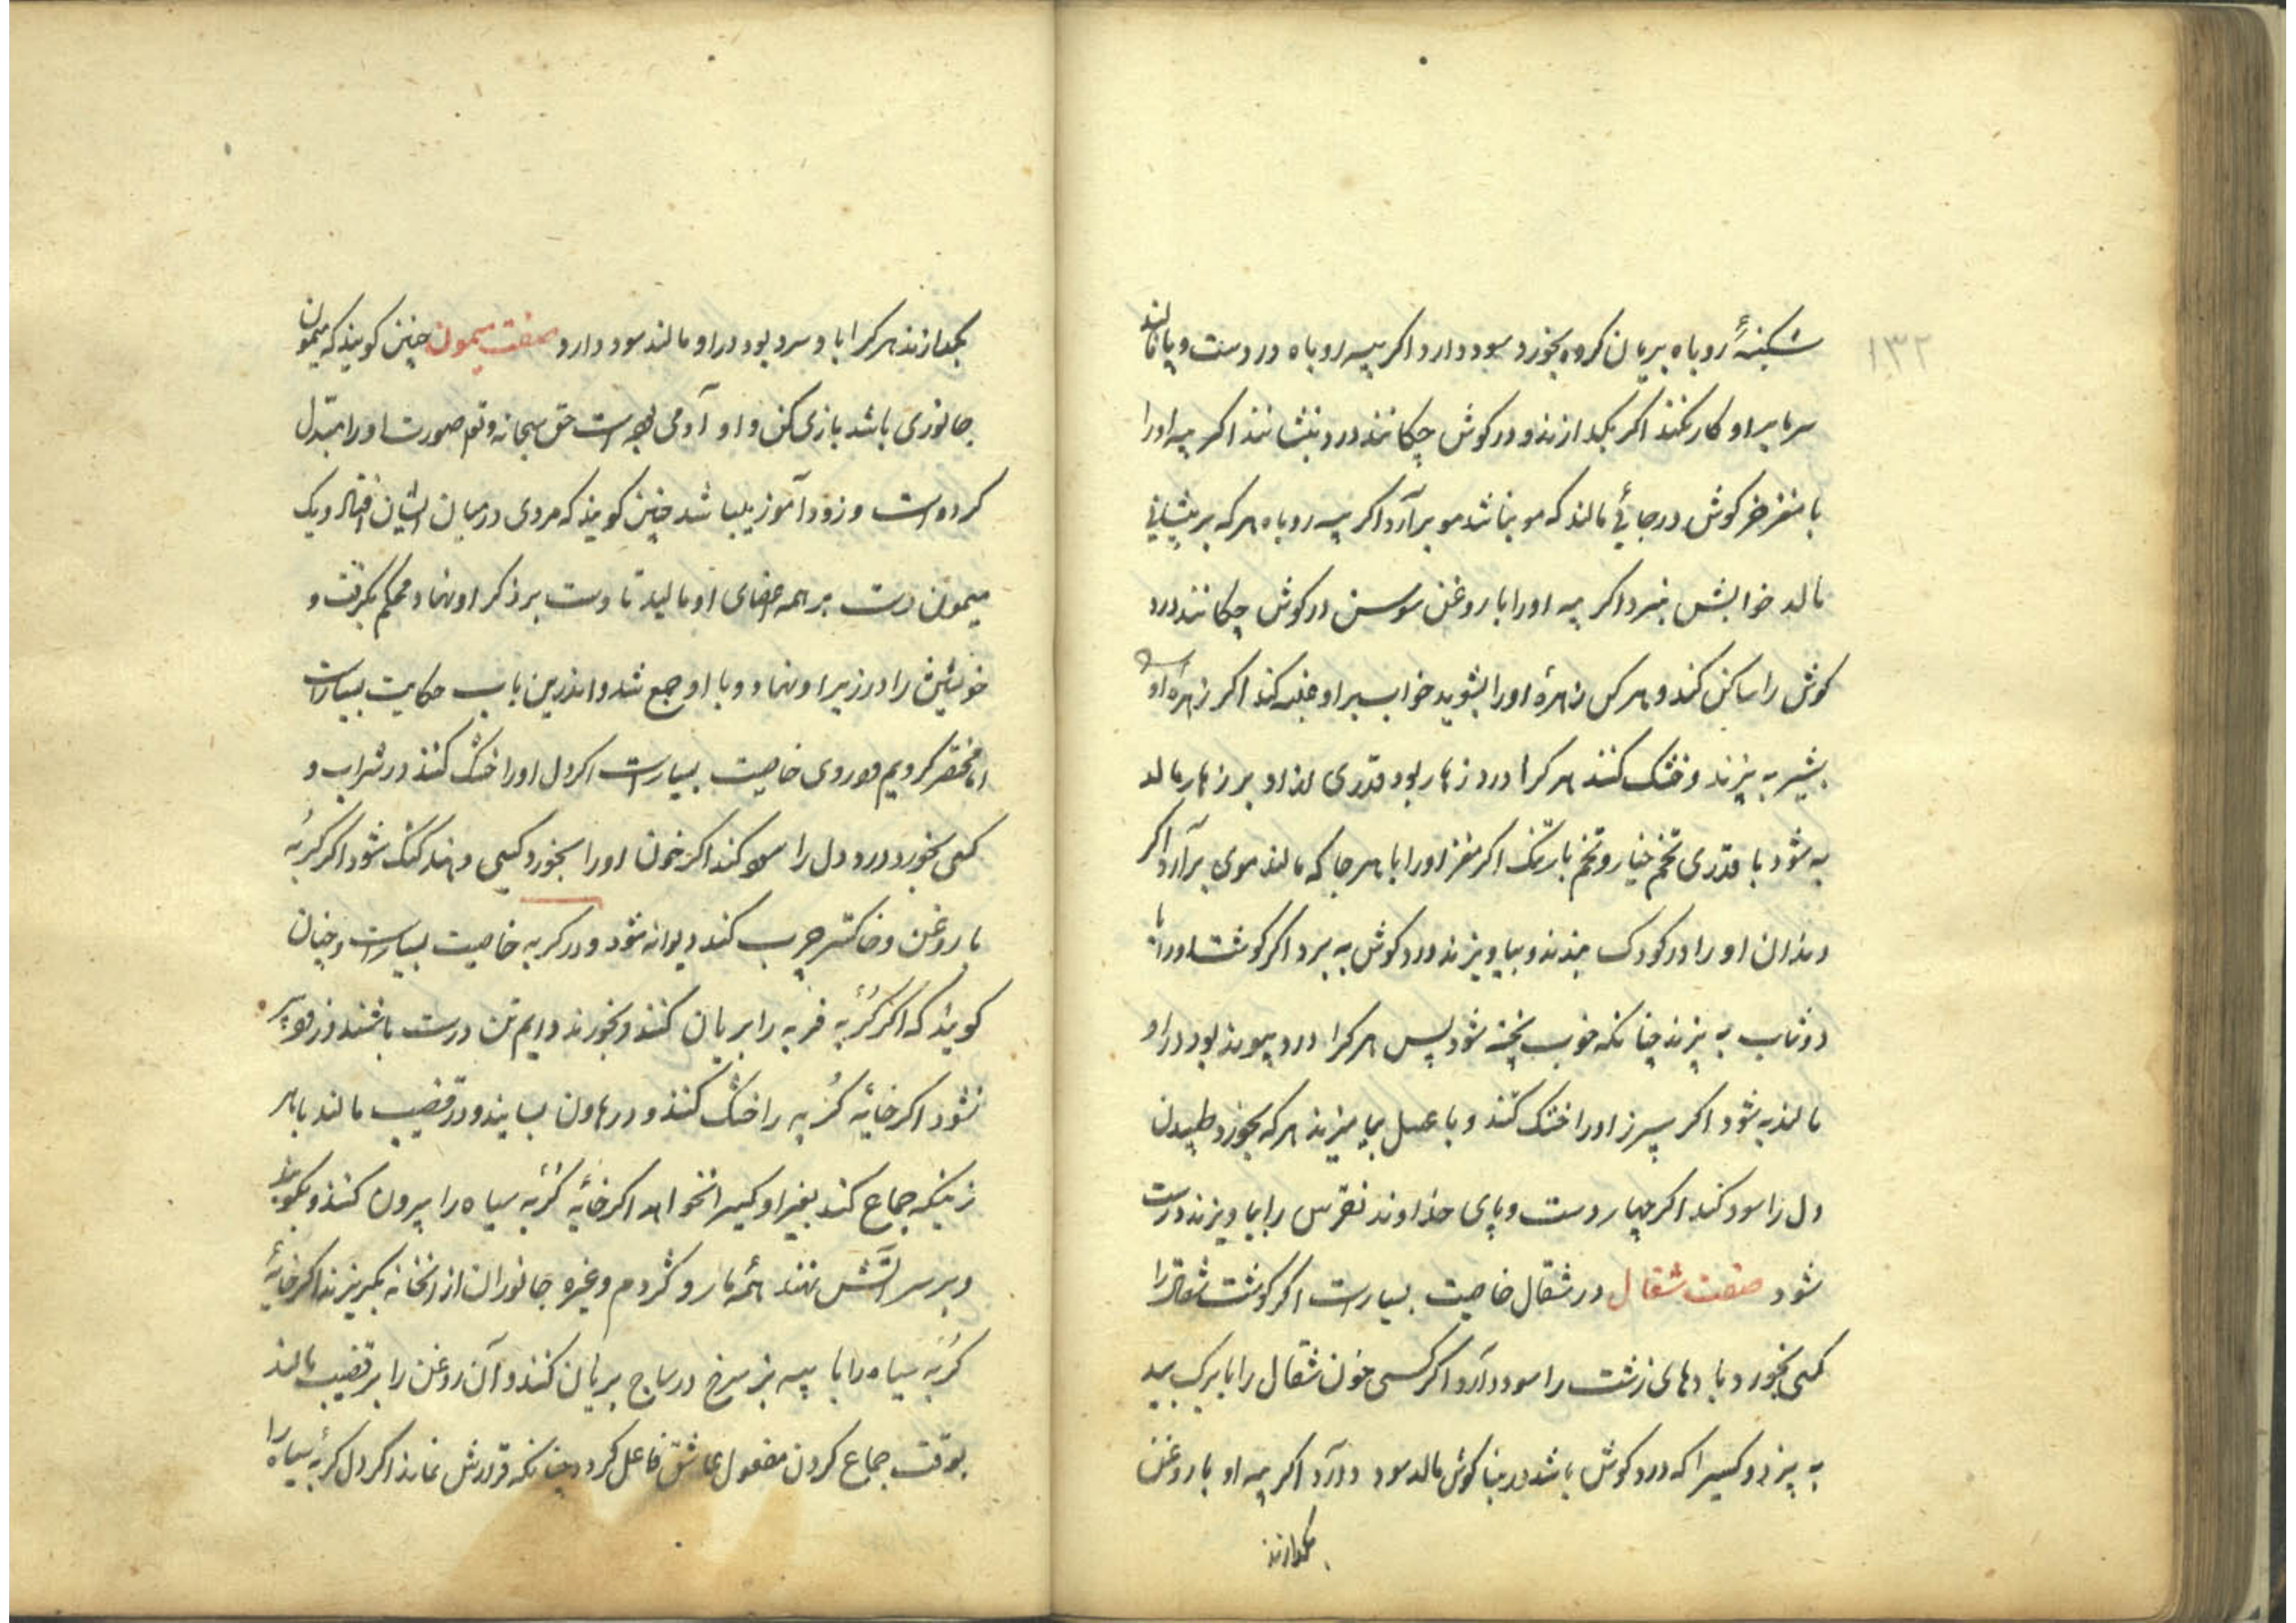 ۱۳۲
شکنبهٔ روباه بریان کرده بخورد سود دارد اکر پیه روباه در دست و پا مالند
سرما بر او کار نکند اکر بکدازند و در کوش چکانند درد بنشانند اکر پیه او را
با مغز خرکوش در جائی مالند که مو نباشد مو برآرد اکر پیه روباه هر که بر پیشانی
مالد خوابش نبرد اکر پیه او را با روغن سوسن در کوش چکانند درد
کوش را ساکن کند و هر کس زهرهٔ او را بشوید خواب بر او غلبه کند اکر زهره او
بشیر به پزند و خشک کنند هر کرا درد زهار بود قدری از او بر زهار مالد
به شود با قدری تخم خیار و تخم بارتنک اکر مغز او را با هر جا که مالند موی برآرد اکر
دندان او را در کودک بندند و بیاویزند درد کوش به برد اکر کوشت او را با
دوشاب به پزند چنانکه خوب پخته شود پس هر کرا درد پیوند بود در او
مالند به شود اکر سپرز او را خشک کنند و با عسل بیامیزند هر که بخورد طپیدن
دل را سود کند اکر چهار دست و پای خداوند نقرس را بیاویزند درست
شود صفت شغال در شغال خاصیت بسیارست اکر کوشت شغال را
کسی بخورد بادهای زشت را سود دارد اکر کسی خون شغال را با برک بید
به پزد و کسیرا که درد کوش باشد در بنا کوش مالد سود دارد اکر پیه او با روغن
بکدازند
بکدازند هر کرا با و سرد بود در او مالند سود دارد صفت میمون چنین کویند که میمون
جانوری باشد بازی کن و او آدمی بوده است حق سبحانه و تعم صورت او را مبدل
کرده است و زود آموز باشد چنین کویند که مردی در میان ایشان افتاد و یک
میمون دست بر همه اعضای او مالید تا دست بر ذکر او نهاد و محکم بکرفت و
خویشتن را در زیر او نهاد و با او جمع شد و اندرین باب حکایت بسیارست
اما مختصر کردیم و در وی خاصیت بسیارست اکر دل او را خشک کنند و در شراب و
کسی بخورد درد دل را سود کند اکر خون او را بخورد کسی دهند کنک شود اکر کربه
با روغن و خاکستر چرب کند دیوانه شود و در کربه خاصیت بسیارست و چنان
کویند که اکر کربه فربه را بریان کنند و بخورند دایم تن درست باشند و زود پیر
نشود اکر خایهٔ کربه را خشک کنند و در هاون بسایند و در قضیب مالند با هر
زنیکه جماع کند بغیر او کسیرا نخواهد اکر خایهٔ کربه سیاه را بیرون کنند و بکوبند
و بر سر آتش نهند همه مار و کژدم و غیره جانوران از آنخانه بکریزند اکر خایهٔ
کربه سیاه را با پیه بز سرخ در ساج بریان کنند و آن روغن را بر قضیب مالند
بوقت جماع کردن مفعول عاشق فاعل کردد چنانکه قرارش نماند اکر دل کربهٔ سیاه را